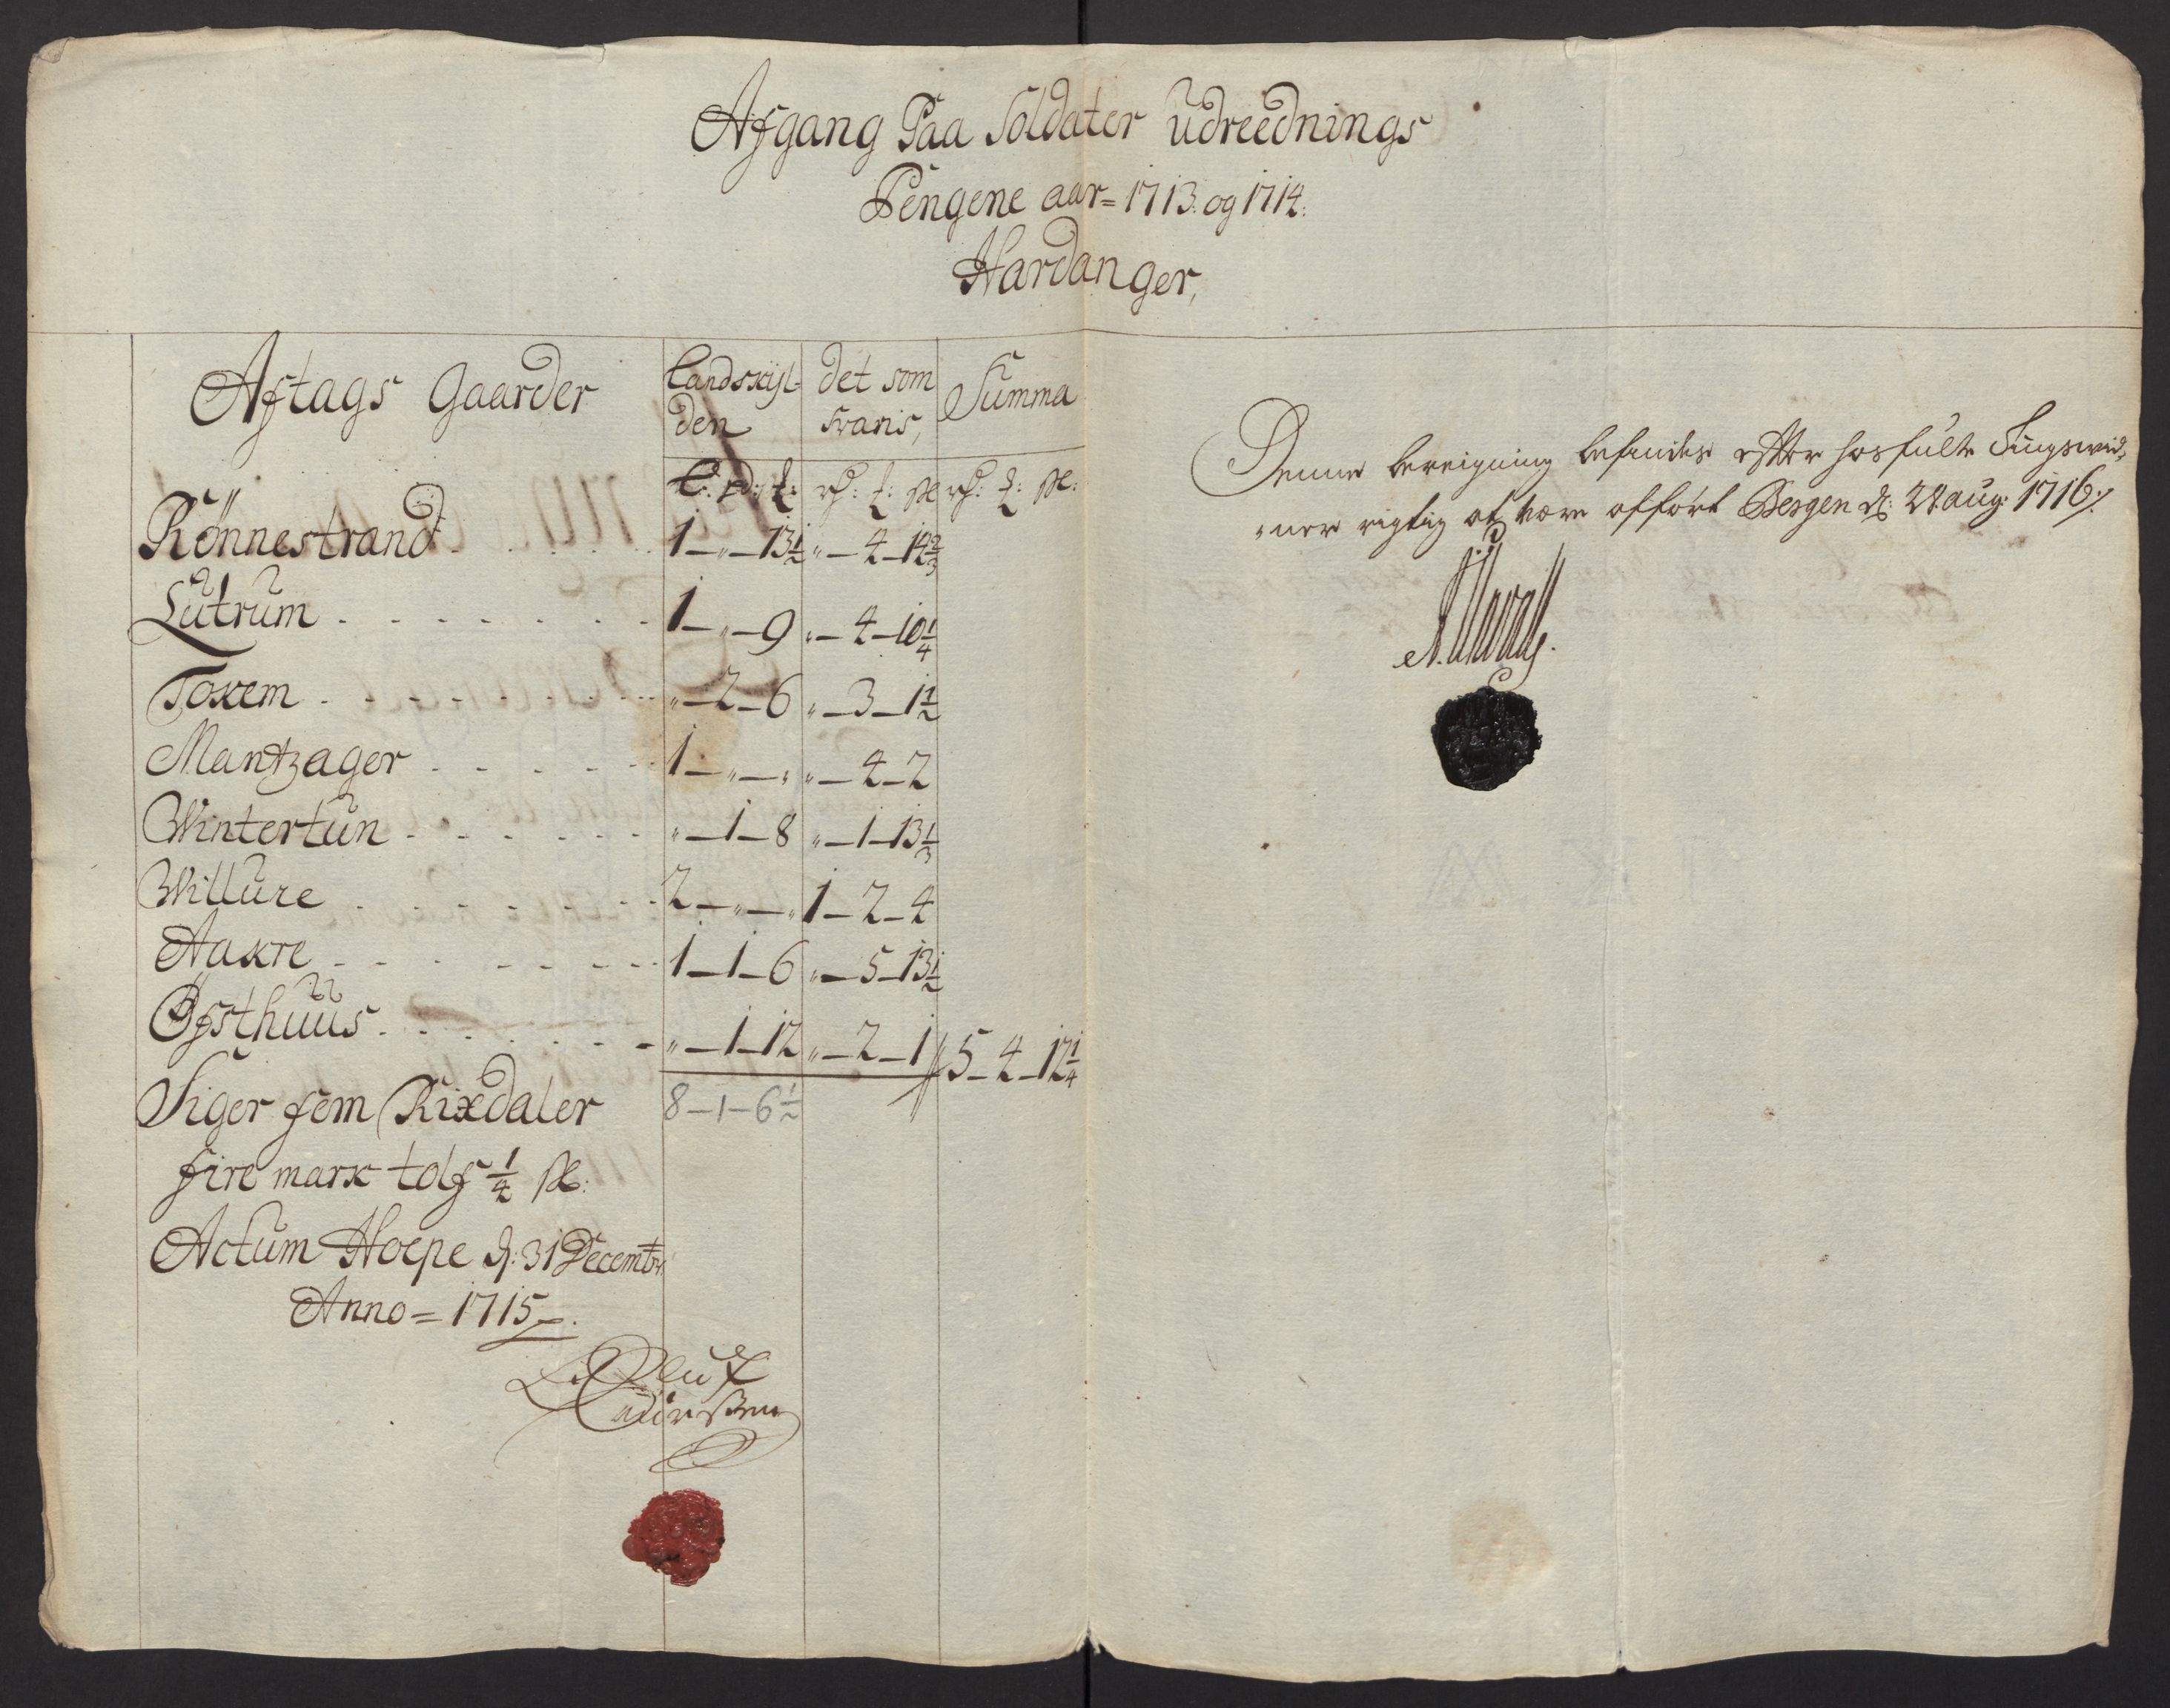 Afgang Paa Soldater Udreednings
Pengene aar = 1713 og 1714:
Hardanger,
Aftags Gaarder Landskyl= det som Summa
den svaris,
rdr: ℔: ß rdr: ℔: ß:
Rönnestrand 1 — „ — 13½ „ — 4 — 14⅔
Lutrum 1 — „ — 9 „ — 4 — 10¼
Toxem „ — 2 — 6 „ — 3 — 1½
Mantzager 1 — „ — „ „ — 4 — 2
Wintertun „ — 1 — 8 „ — 1 — 13⅓
Willure 2 — „ — „ 1 — 2 — 4
Aakre 1 — 1 — 6 „ — 5 — 13½
Öfsthuus „ — 1 — 12 „ — 2 — 1 // 5 — 4 — 12¼
Siger fem Rixdaler 8 — 1 — 6½
fire mark tolf ¼ ß:
Actum Hoepe d: 31 Decembr:
Anno = 1715
Oluf
Laursßen
Denne bereigning befindes efter hosfulte Tingswid„
„ner rigtig at være afført Bergen d: 28 aug: 1716:/